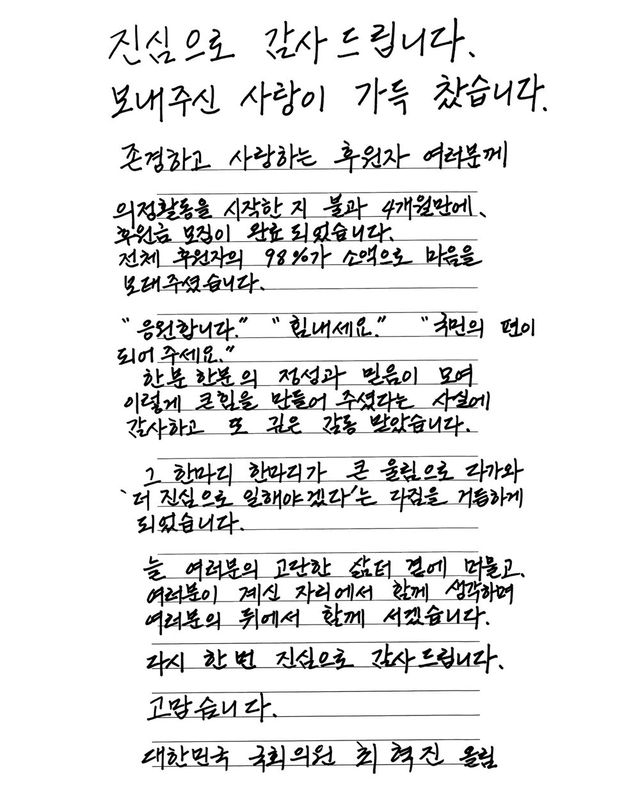 진심으로 감사드립니다.
보내주신 사랑이 가득 찼습니다.
존경하고 사랑하는 후원자 여러분께
의정활동을 시작한 지 불과 4개월만에,
후원금 모집이 완료되었습니다.
전체 후원자의 98%가 소액으로 마음을
보태주셨습니다.
"응원합니다." "힘내세요." "국민의 편이
되어 주세요."
한분 한분의 정성과 믿음이 모여
이렇게 큰힘을 만들어 주셨다는 사실에
감사하고 또 깊은 감동 받았습니다.
그 한마디 한마디가 큰 울림으로 다가와
'더 진심으로 일해야겠다'는 다짐을 거듭하게
되었습니다.
늘 여러분의 고단한 삶터 곁에 머물고,
여러분이 계신 자리에서 함께 생각하며
여러분의 뒤에서 함께 서겠습니다.
다시 한번 진심으로 감사드립니다.
고맙습니다.
대한민국 국회의원 최혁진 올림